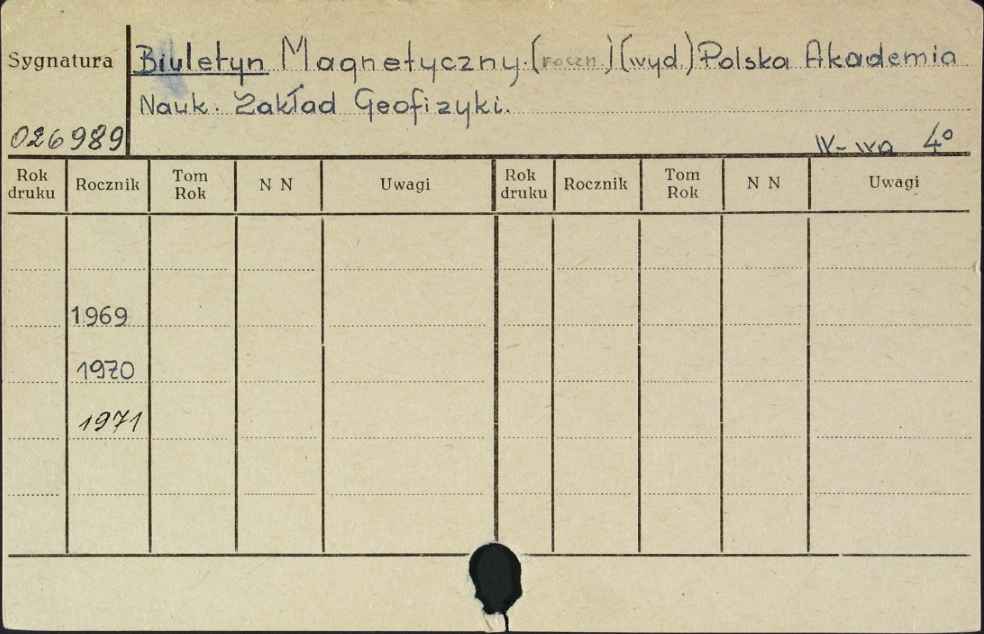 Sygnatura
Biuletyn Magnetyczny. (roczn.) (wyd.) Polska Akademia
Nauk. Zakład Geofizyki.
026989
W-wa 4°
Rok druku Rocznik Tom Rok N N Uwagi Rok druku Rocznik Tom Rok N N Uwagi
1969
1970
1971